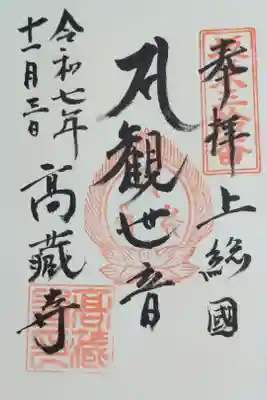 坂東三十番
奉拝
上総國
観世音
令和七年
十一月三日
高藏寺